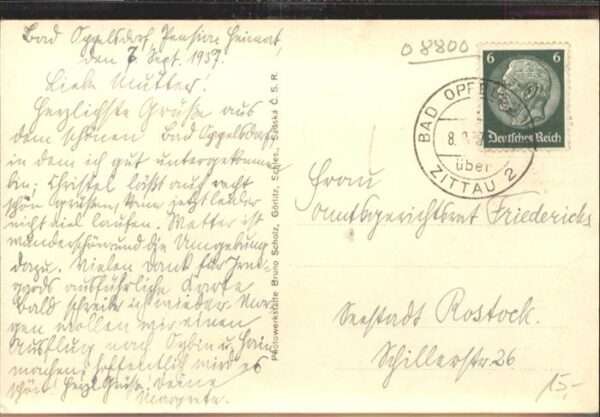 Bad Oppelsdorf, Pension Heimat,
den 7. Sept. 1937.
Liebe Mutter!
Herzlichste Grüße aus
dem schönen Bad Oppelsdorf,
in dem ich gut untergekommen
bin; Christel läßt auch recht
schön grüßen, kann jetzt leider
nicht viel laufen. Wetter ist
wunderschön und die Umgebung
dazu. Vielen Dank für
ausführliche Karte
bald schreibe ich wieder. Mor-
gen wollen wir einen
Ausflug nach Oybin u. Hain
machen, hoffentlich wird es
schön. Herzl. Grüße Deine
Margrete.
Photowerkstätte Bruno Scholz, Görlitz, Schles., Č. S. R.
08800
6 6
Deutsches Reich
BAD OPPELSDORF
8.
über
ZITTAU 2
Frau
Amtsgerichtsrat Friederichs
Seestadt Rostock.
Schillerstr. 26
15,-